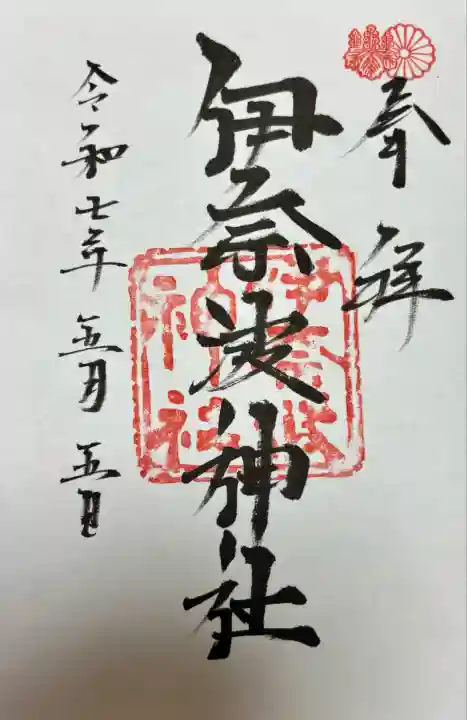 奉拝
伊奈波神社
伊奈波神社
令和七年 五月 五日